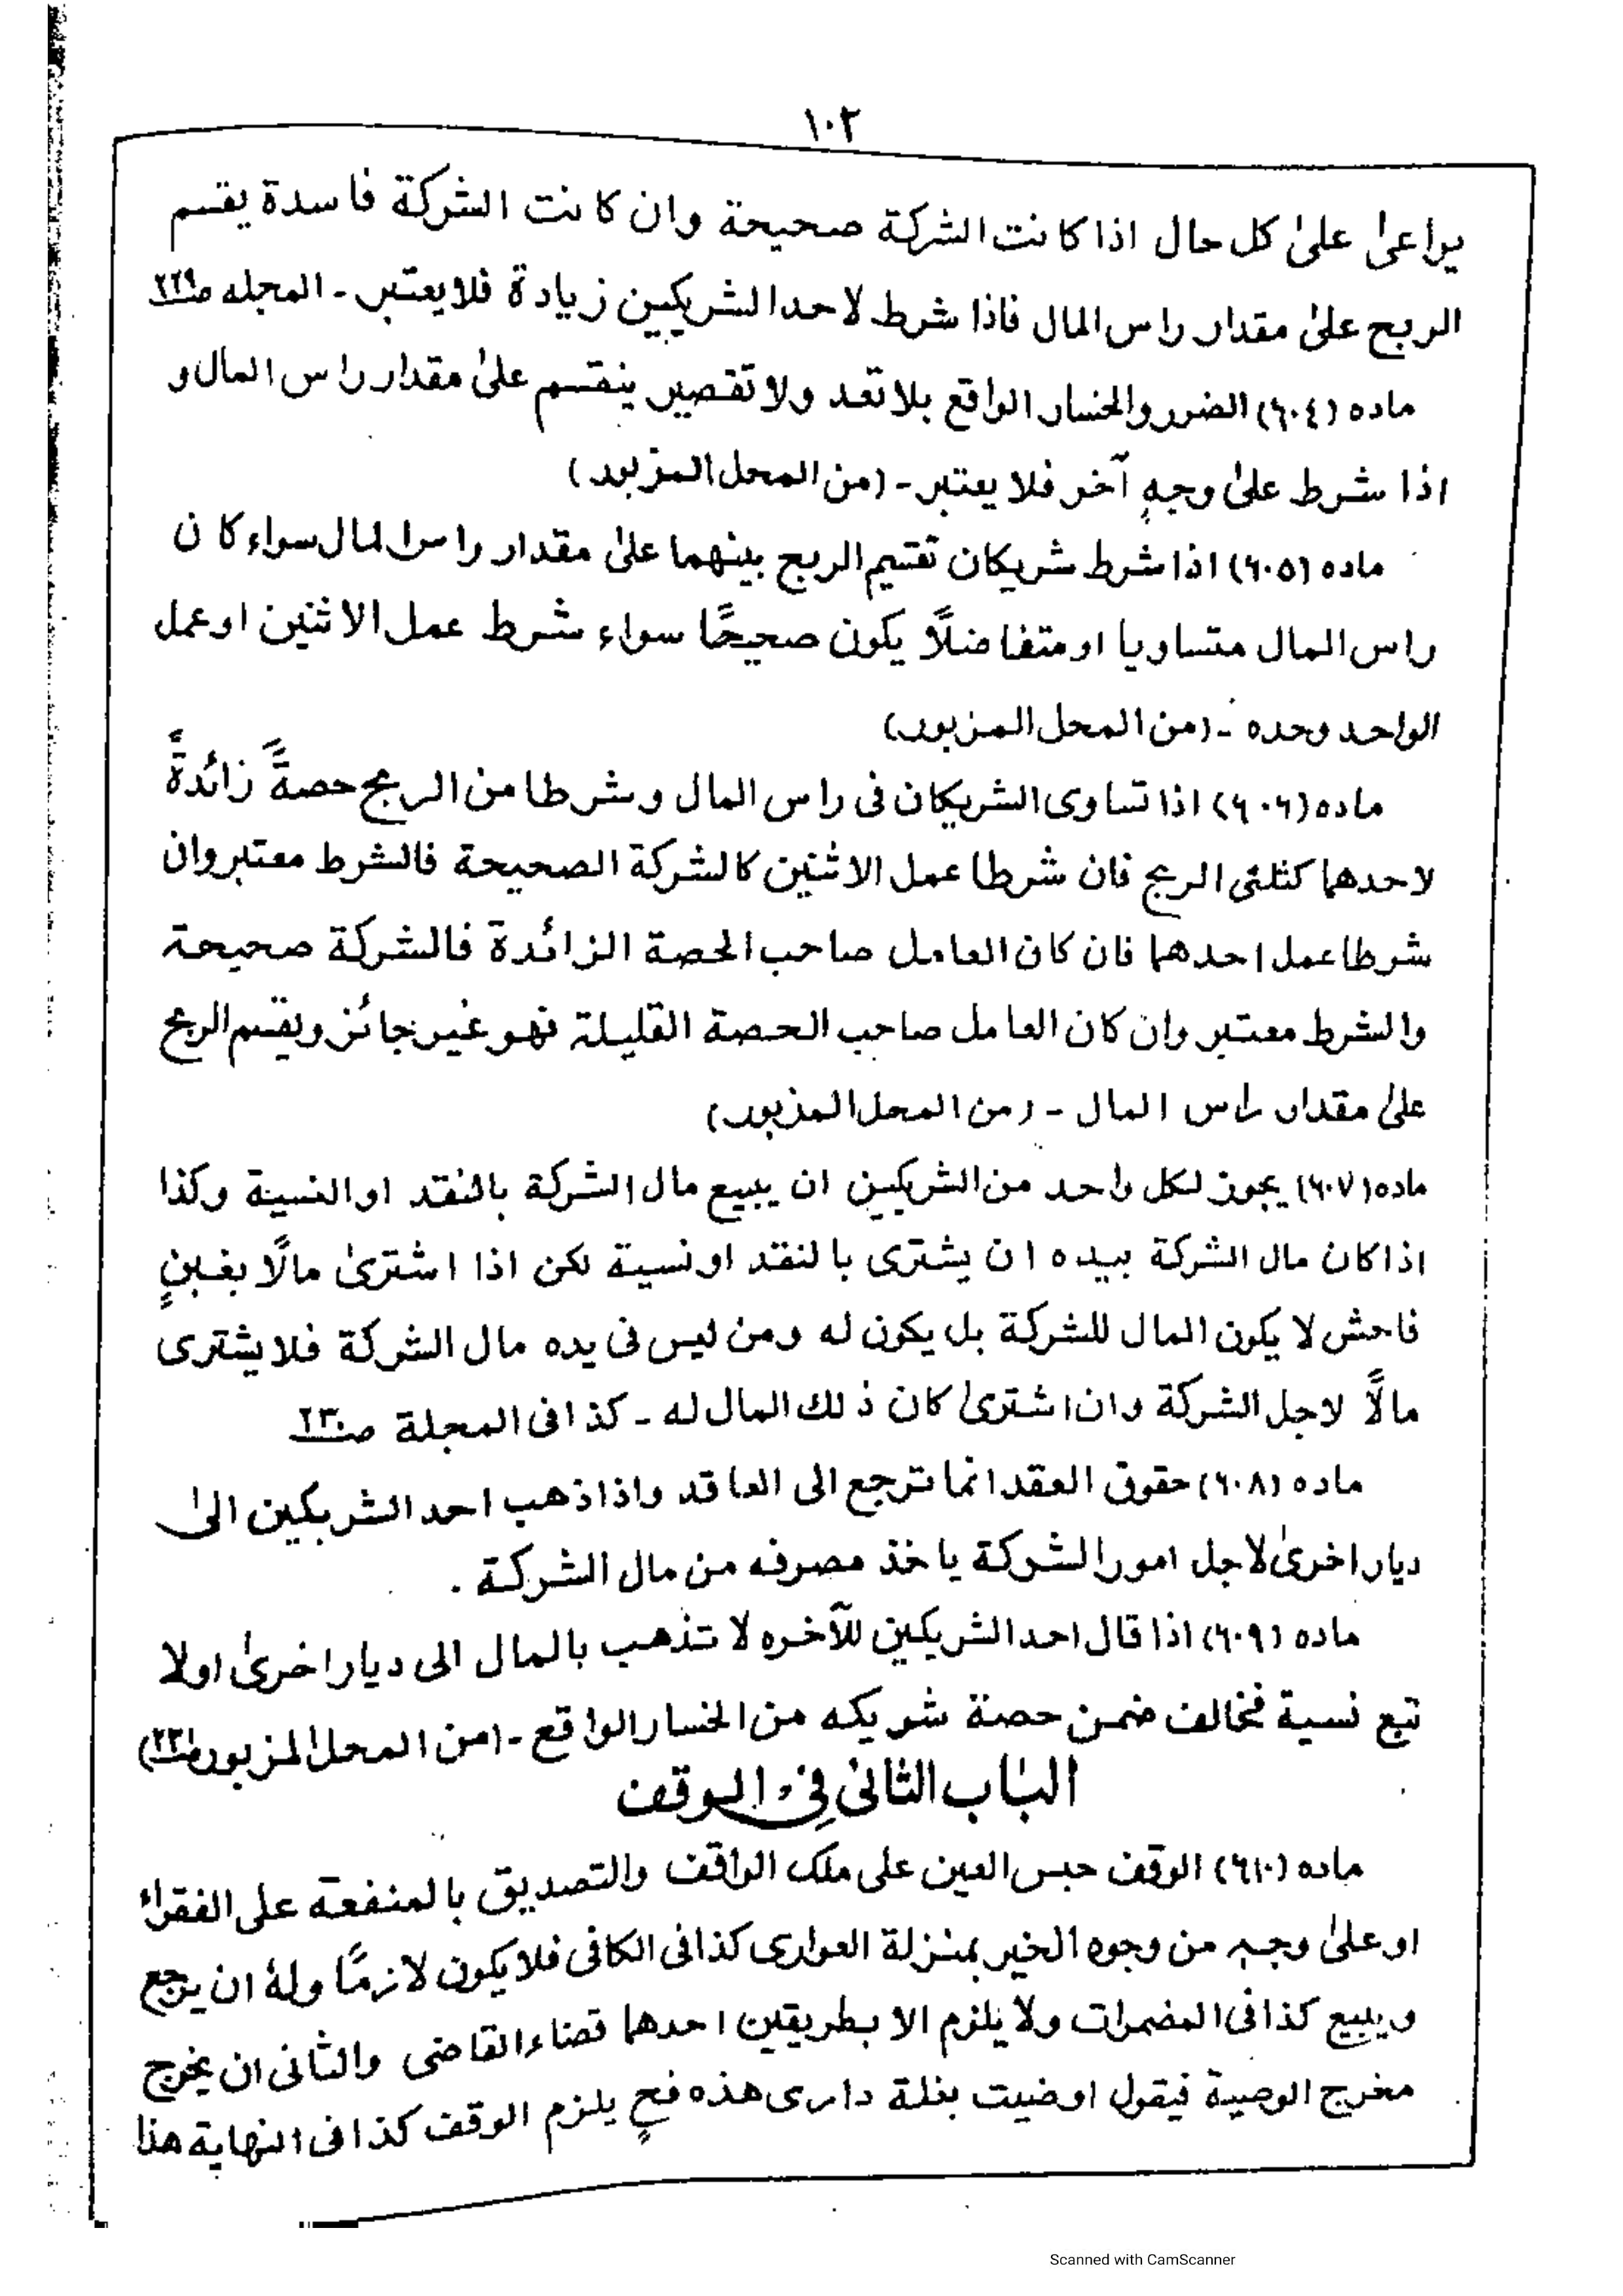 ١٠٢
يراعىٰ علىٰ كل حال اذا كانت الشركة صحيحة وان كانت الشركة فاسدة يقسم
الربح علىٰ مقدار راس المال فاذا شرط لاحد الشريكين زيادة فلا يعتبر - المجله صـ٢٢٩
ماده (٦٠٤) الضرر والخسار الواقع بلا تعد ولا تقصير ينقسم علىٰ مقدار راس المال و
اذا شرط علىٰ وجهٍ آخر فلا يعتبر - (من المحل المزبور)
ماده (٦٠٥) اذا شرط شريكان تقسيم الربح بينهما علىٰ مقدار راس المال سواء كان
راس المال متساويا او متفاضلًا يكون صحيحًا سواء شرط عمل الاثنين او عمل
الواحد وحده - (من المحل المزبور)
ماده (٦٠٦) اذا تساوى الشريكان فى راس المال وشرطا من الربح حصةً زائدةً
لاحدهما كثلثى الربح فان شرطا عمل الاثنين كالشركة الصحيحة فالشرط معتبر وان
شرطا عمل احدهما فان كان العامل صاحب الحصة الزائدة فالشركة صحيحة
والشرط معتبر وان كان العامل صاحب الحصة القليلة فهو غير جائز ويقسم الربح
علىٰ مقدار راس المال - (من المحل المزبور)
ماده (٦٠٧) يجوز لكل واحد من الشريكين ان يبيع مال الشركة بالنقد او النسية وكذا
اذا كان مال الشركة بيده ان يشترى بالنقد او نسية لكن اذا اشترىٰ مالًا بغبنٍ
فاحش لا يكون المال للشركة بل يكون له ومن ليس فى يده مال الشركة فلا يشترى
مالًا لاجل الشركة وان اشترىٰ كان ذلك المال له - كذا فى المجلة صـ٢٣٠
ماده (٦٠٨) حقوق العقد انما ترجع الى العاقد واذا ذهب احد الشريكين الىٰ
ديار اخرىٰ لاجل امور الشركة ياخذ مصرفه من مال الشركة .
ماده (٦٠٩) اذا قال احد الشريكين للآخره لا تذهب بالمال الى ديار اخرىٰ اولا
تبع نسية فخالف ضمن حصة شريكه من الخسار الواقع - (من المحل المزبور
الباب الثانى فى الوقف
ماده (٦١٠) الوقف حبس العين على ملك الواقف والتصديق بالمنفعة على الفقراء
او علىٰ وجهٍ من وجوه الخير بمنزلة العوارى كذا فى الكافى فلا يكون لازمًا ولهٗ ان يرجع
ويبيع كذا فى المضمرات ولا يلزم الا بطريقين احدهما قضاء القاضى والثانى ان يخرج
مخرج الوصية فيقول اوضيت بغلة دارى هذه فحٍ يلزم الوقف كذا فى النهاية هذا
Scanned with CamScanner